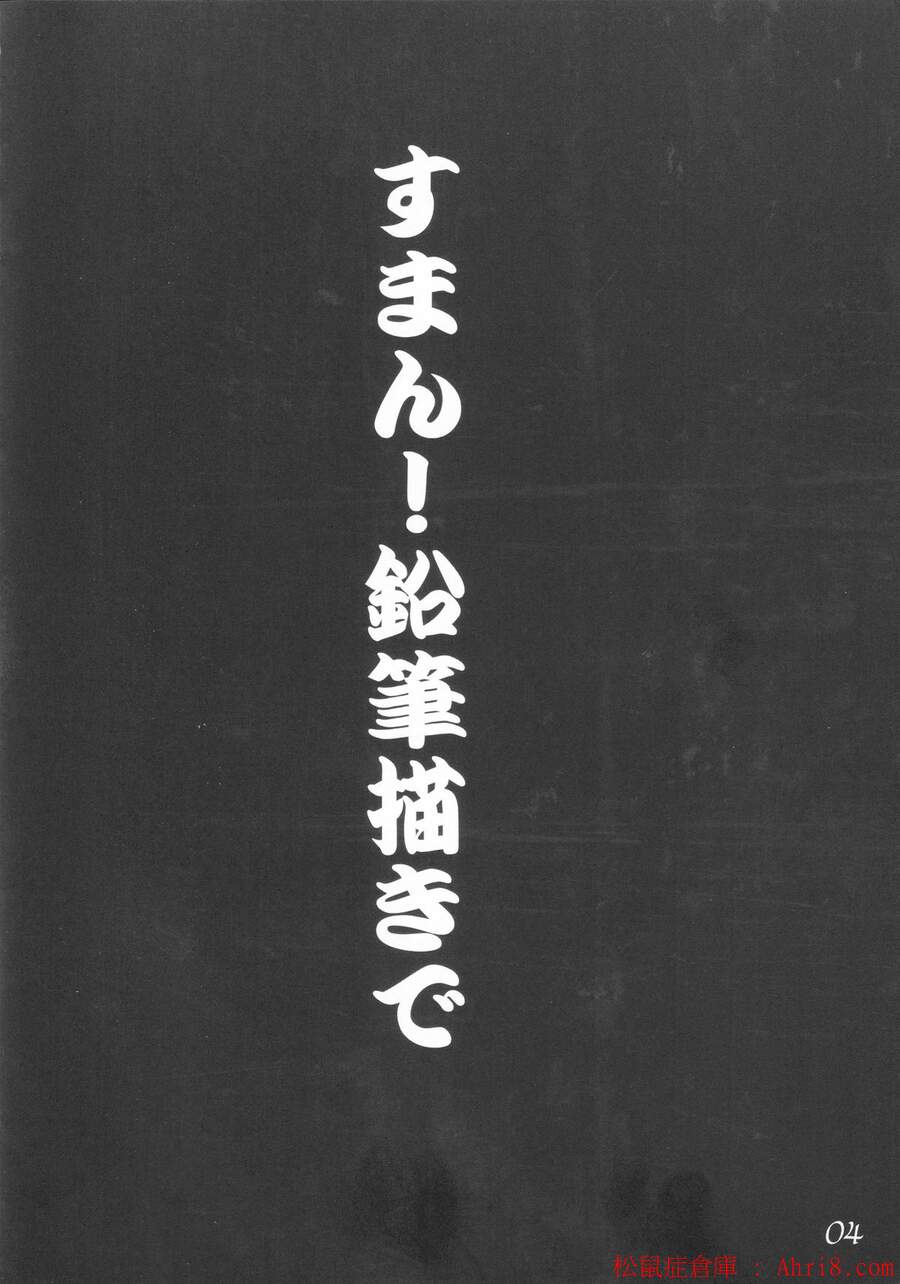 すまん！鉛筆描きで
04
松鼠症倉庫 : Ahri8.com